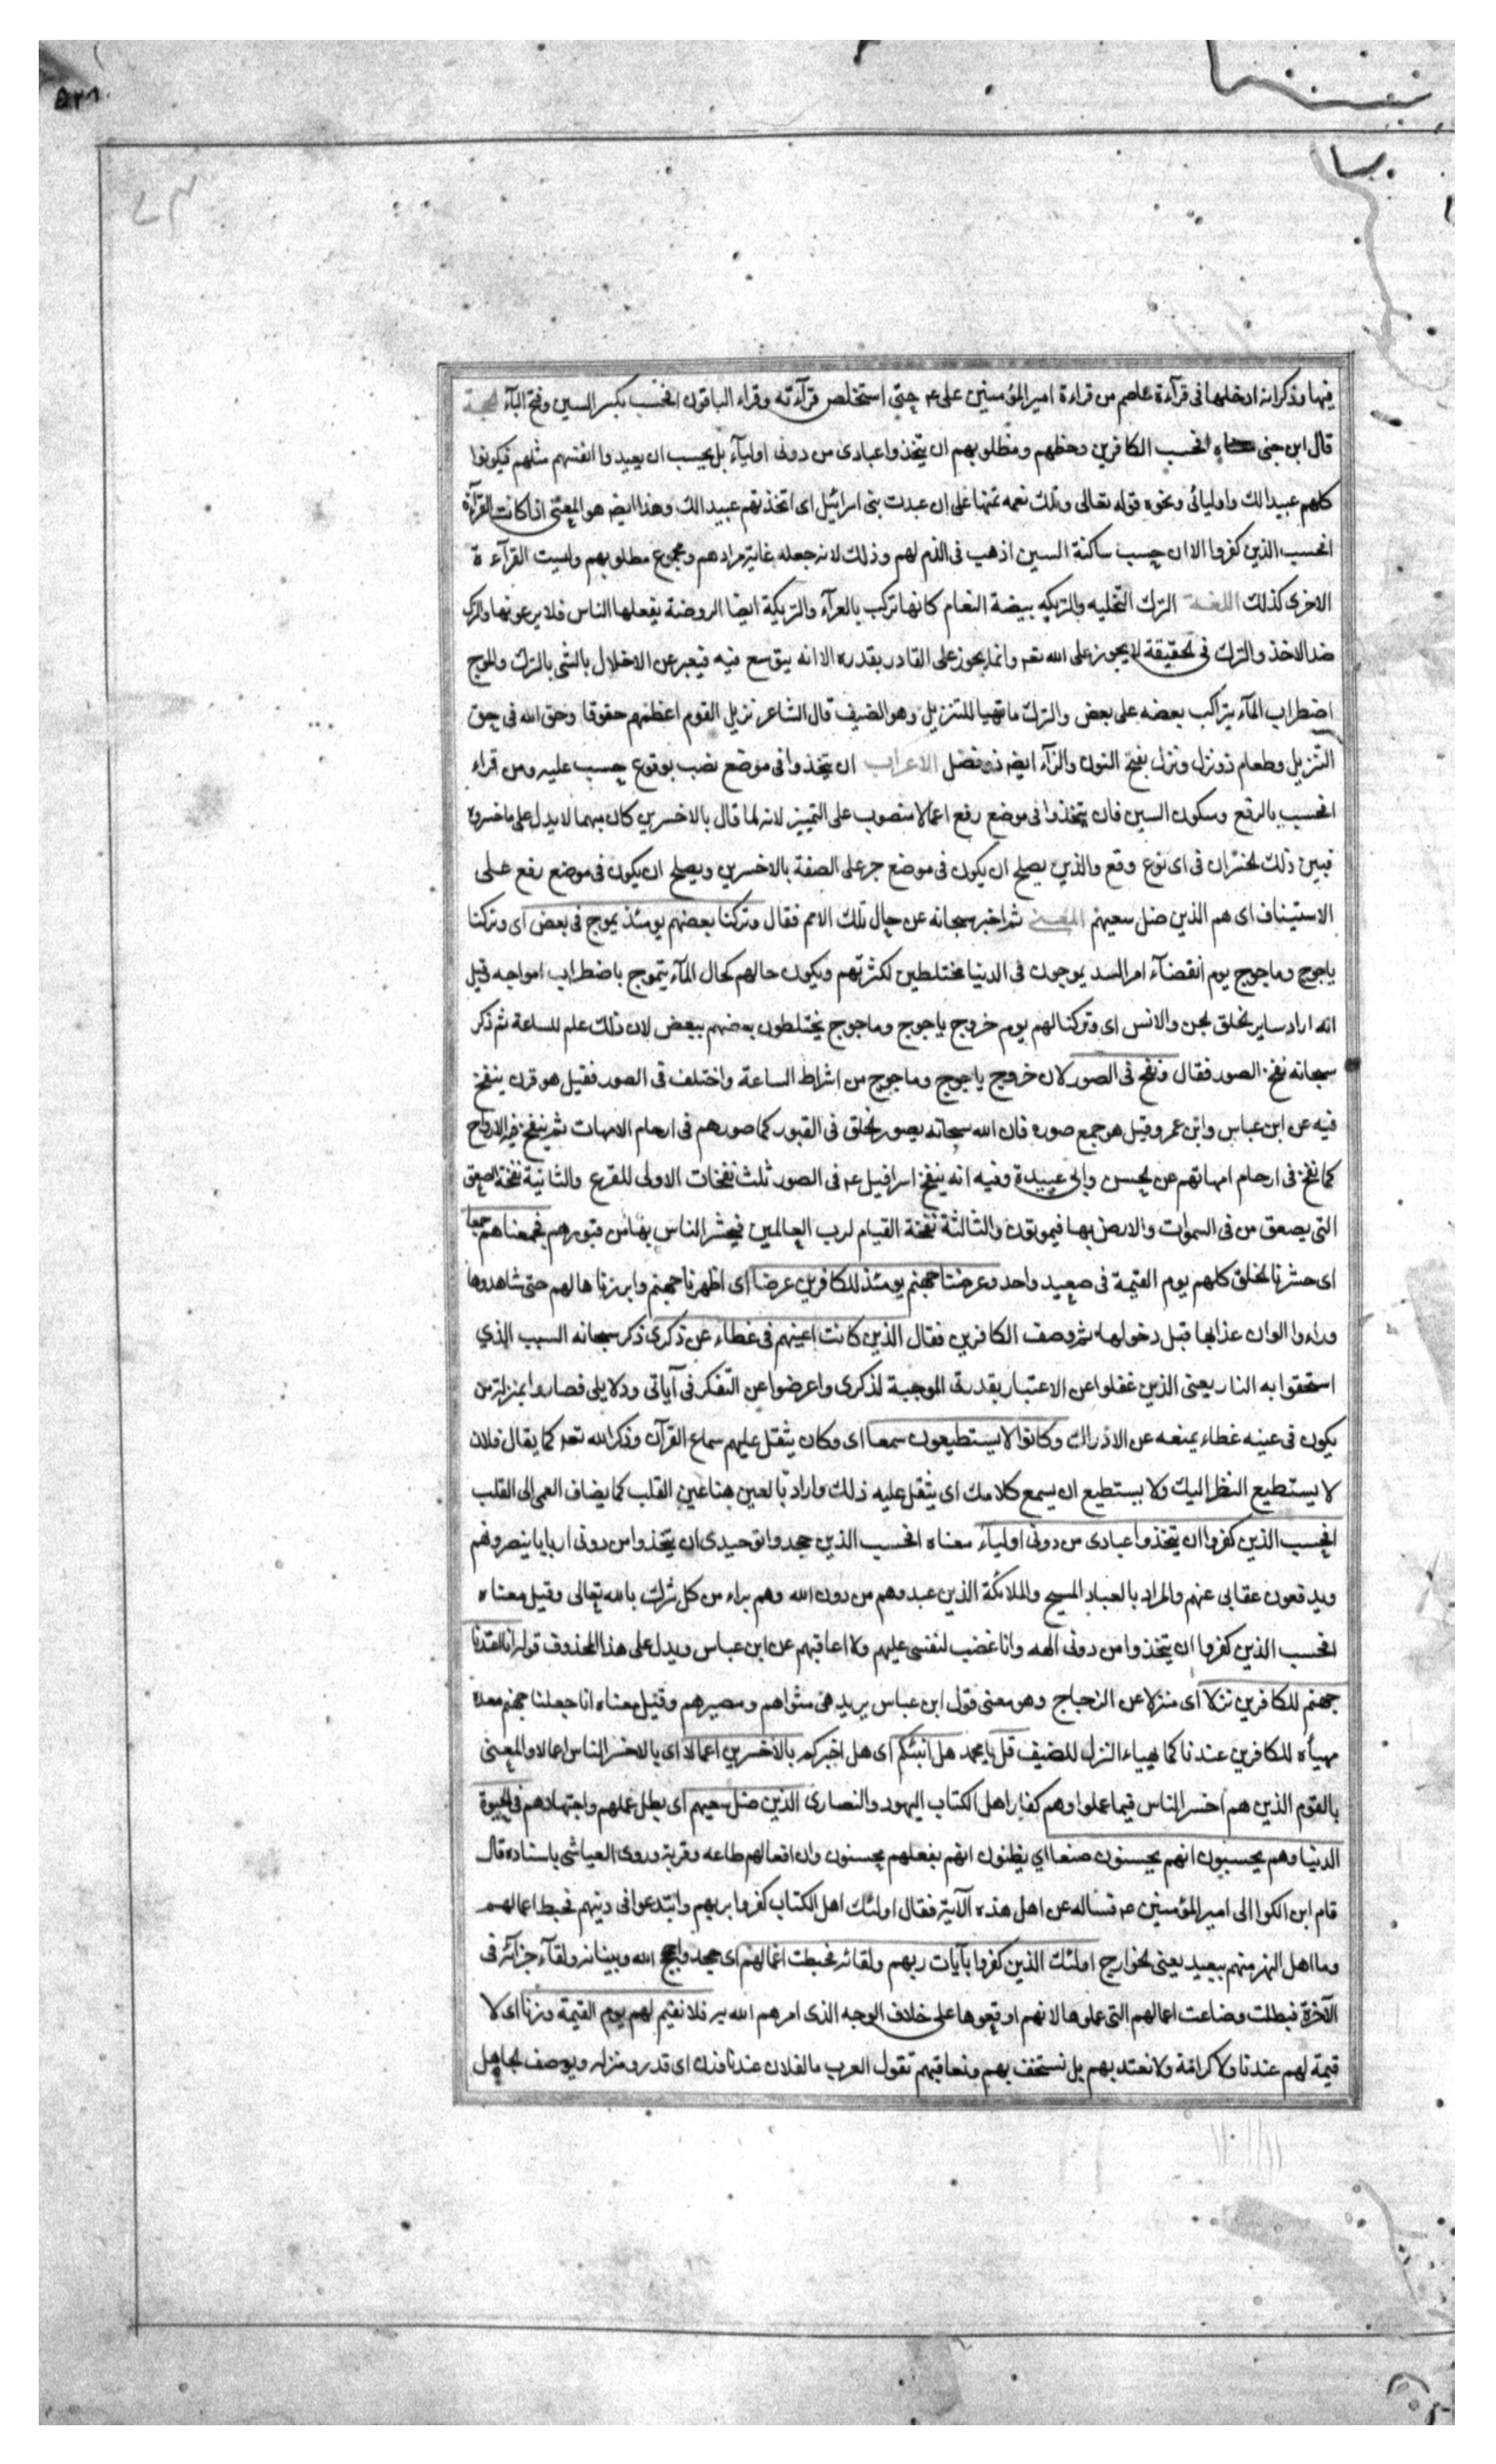 فيها وذكر انه ادخلها فى قرآءة عاصم من قراءة امير المؤمنين على ع حتى استخلص قرآءته وقراء الباقون افحسب بكسر السين وفتح البآء الحجة
قال ابن جنى معناه افحسب الكافرين وحظهم ومطلوبهم ان يتخذوا عبادى من دونى اوليآء بل يحسب ان يعيدوا انفسهم مثلهم فيكونوا
كلهم عبيدا لك واوليائى ونحوه قوله تعالى وتلك نعمه تمنها على ان عبدت بنى اسرائيل اى اتخذتهم عبيدا لك وهذا ايضه هو المعنى اذا كانت القرآءة
افحسب الذين كفروا الا ان حسب ساكنة السين اذهب فى الذم لهم وذلك لانه جعله غاية مرادهم ومجموع مطلوبهم وليست القرآءة
الاخرى كذلك اللغة الترك التخليه والتريكه بيضة النعام كانها تركب بالعرآء والتريكة ايضا الروضة يغفلها الناس فلا يرعونها والترك
ضد الاخذ والترك فى الحقيقة لا يجوز على الله تعه وانما يجوز على القادر بقدره الا انه يتوسع فيه فيعبر عن الاخلال بالشى بالترك والموج
اضطراب المآء يتراكب بعضه على بعض والنزل ما تهيا للتنزيل وهو الضيف قال الشاعر نزيل القوم اعظمهم حقوقا وحق الله فى حق
النزيل وطعام ذو نزل ونزل بفتح النون والزآء ايضه ذو فضل الاعراب ان يتخذوا فى موضع نصب بوقوع حسب عليه ومن قراء
افحسب بالرفع وسكون السين فان يتخذوا فى موضع رفع اعمالا منصوب على التمييز لانه لما قال بالاخسرين كان مبهما لا يدل على ما خسروه
فبين ذلك الخسران فى اى نوع وقع والذين يصلح ان يكون فى موضع جر على الصفة بالاخسرين ويصلح ان يكون فى موضع رفع على
الاستيناف اى هم الذين ضل سعيهم المعنى ثم اخبر سبحانه عن حال تلك الامم فقال وتركنا بعضهم يومئذ يموج فى بعض اى وتركنا
ياجوج وماجوج يوم انقضآء امر السد يموجون فى الدنيا مختلطين لكثرتهم ويكون حالهم كحال المآء يتموج باضطراب امواجه وقيل
انه اراد ساير الخلق الجن والانس اى وتركنا لهم يوم خروج ياجوج وماجوج يختلطون بعضهم ببعض لان ذلك علم للساعة ثم ذكر
سبحانه نفخ الصور فقال ونفخ فى الصور لان خروج ياجوج وماجوج من اشراط الساعة واختلف فى الصور فقيل هو قرن ينفخ
فيه عن ابن عباس وابن عمر وقيل هو جمع صوره فان الله سبحانه يصور الخلق فى القبور كما صورهم فى ارحام الامهات ثم ينفخ فيهم الارواح
كما نفخ فى ارحام امهاتهم عن الحسن وابى عبيدة وفيه انه ينفخ اسرافيل ع فى الصور ثلث نفخات الاولى للفزع والثانية نفخة الصعق
التى يصعق من فى السموات والارض بها فيموتون والثالثة نفخة القيام لرب العالمين فيحشر الناس بها من قبورهم فجمعناهم جمعا
اى حشرنا الخلق كلهم يوم القيمة فى صعيد واحد وعرضنا جهنم يومئذ للكافرين عرضا اى اظهرنا جهنم وابرزناها لهم حتى شاهدوها
وراءوا الوان عذابها قبل دخولها ثم وصف الكافرين فقال الذين كانت اعينهم فى غطاء عن ذكرى ذكر سبحانه السبب الذي
استحقوا به النار يعنى الذين غفلوا عن الاعتبار بقدرتى الموجبة لذكرى واعرضوا عن التفكر فى آياتى ودلايلى فصاروا بمنزلة من
يكون فى عينه غطاء يمنعه عن الادراك وكانوا لا يستطيعون سمعا اى وكان يثقل عليهم سماع القرآن وذكر الله تعه كما يقال فلان
لا يستطيع النظر اليك ولا يستطيع ان يسمع كلامك اى يثقل عليه ذلك واراد بالعين هنا عين القلب كما يضاف العمى الى القلب
افحسب الذين كفروا ان يتخذوا عبادى من دونى اولياء معناه افحسب الذين جحدوا توحيدى ان يتخذوا من دونى اربابا ينصرونهم
ويدفعون عقابى عنهم والمراد بالعباد المسيح والملائكة الذين عبدوهم من دون الله وهم براء من كل شرك بالله تعالى وقيل معناه
افحسب الذين كفروا ان يتخذوا من دونى الهه وانا غضب لنفسى عليهم ولا اعاقبهم عن ابن عباس ويدل على هذا المحذوف قوله انا اعتدنا
جهنم للكافرين نزلا اى منزلا عن الزجاج وهو معنى قول ابن عباس يريد هى مثواهم ومصيرهم وقيل معناه انا جعلنا جهنم معده
مهيأه للكافرين عندنا كما يهياء النزل للضيف قل يا محمد هل انبئكم اى هل اخبركم بالاخسرين اعمالا اى بالاخسر الناس اعمالا والمعنى
بالقوم الذين هم اخسر الناس فيما عملوا وهم كفار اهل الكتاب اليهود والنصارى الذين ضل سعيهم اى بطل عملهم واجتهادهم فى الحيوة
الدنيا وهم يحسبون انهم يحسنون صنعا اي يظنون انهم بفعلهم يحسنون وان افعالهم طاعه وقربة وروى العياشى باسناده قال
قام ابن الكوا الى امير المؤمنين ع فساله عن اهل هذه الآية فقال اولئك اهل الكتاب كفروا بربهم وابتدعوا فى دينهم فحبط اعمالهم
وما اهل النهر منهم ببعيد يعنى الخوارج اولئك الذين كفروا بآيات ربهم ولقائه فحبطت اعمالهم اى جحدوا بحجج الله وبيناته ولقآء جزآئه فى
الآخرة فبطلت وضاعت اعمالهم التى عملوها لانهم اوقعوها على خلاف الوجه الذى امرهم الله به فلا نقيم لهم يوم القيمة وزنا اى لا
قيمة لهم عندنا ولا كرامة ولا نعتد بهم بل نستخف بهم ونعاقبهم تقول العرب ما لفلان عندنا وزن اى قدر ومنزله ويوصف الجاهل